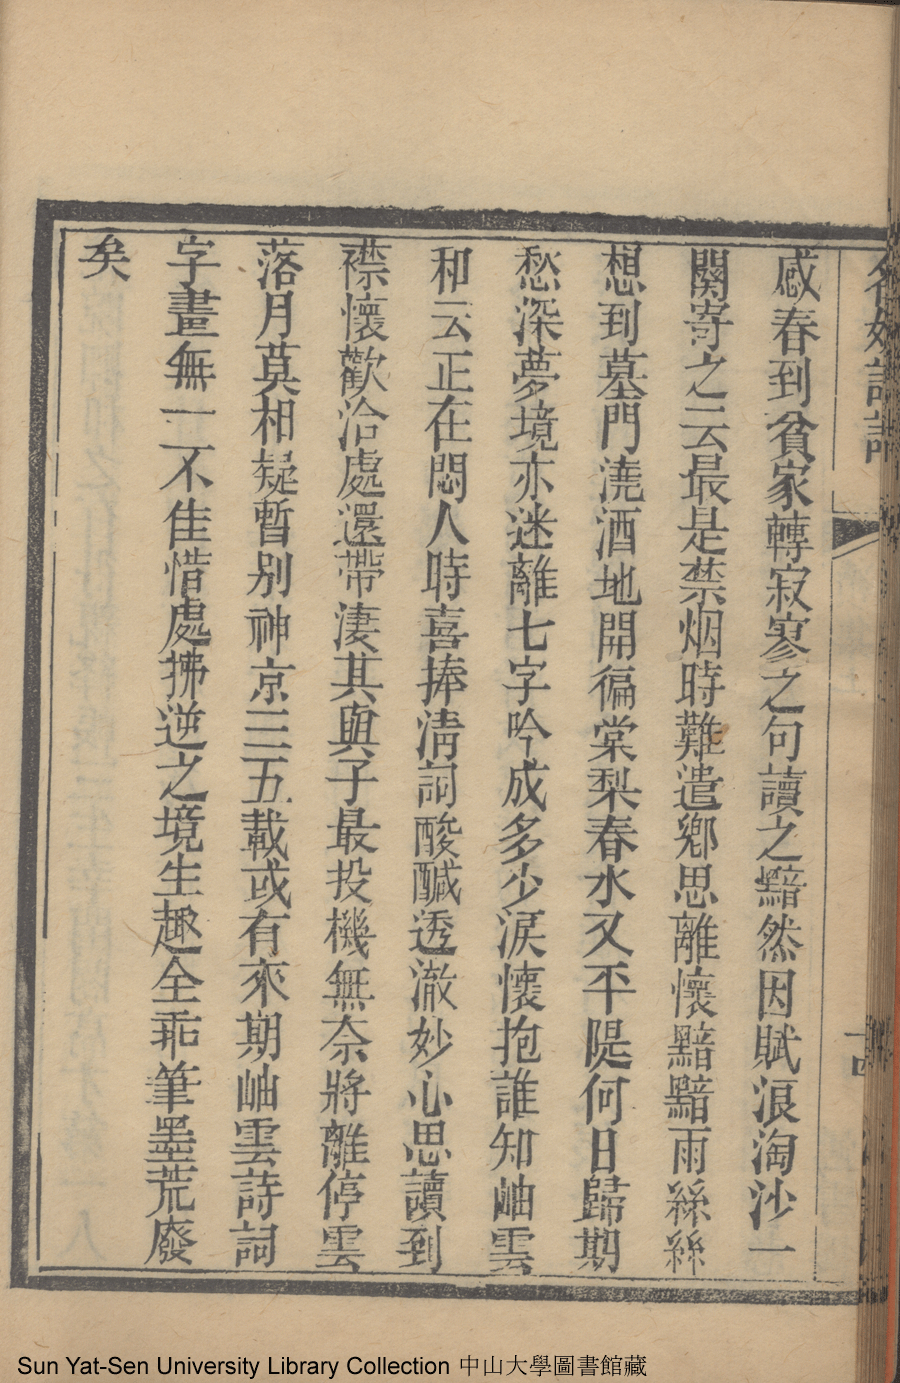 名媛詩話
感春到貧家轉寂寥之句讀之黯然因賦浪淘沙一
闋寄之云最是禁烟時難遣鄉思離懷黯黯雨絲絲
想到墓門澆酒地開徧棠梨春水又平隄何日歸期
愁深夢境亦迷離七字吟成多少淚懷抱誰知岫雲
和云正在悶人時喜捧淸詞酸醎透澈妙心思讀到
襟懷歡洽處還帶淒其與子最投機無奈將離停雲
落月莫相疑暫别神京三五載或有來期岫雲詩詞
字畫無一不佳惜處拂逆之境生趣全乖筆墨荒廢
矣
Sun Yat-Sen University Library Collection 中山大學圖書館藏